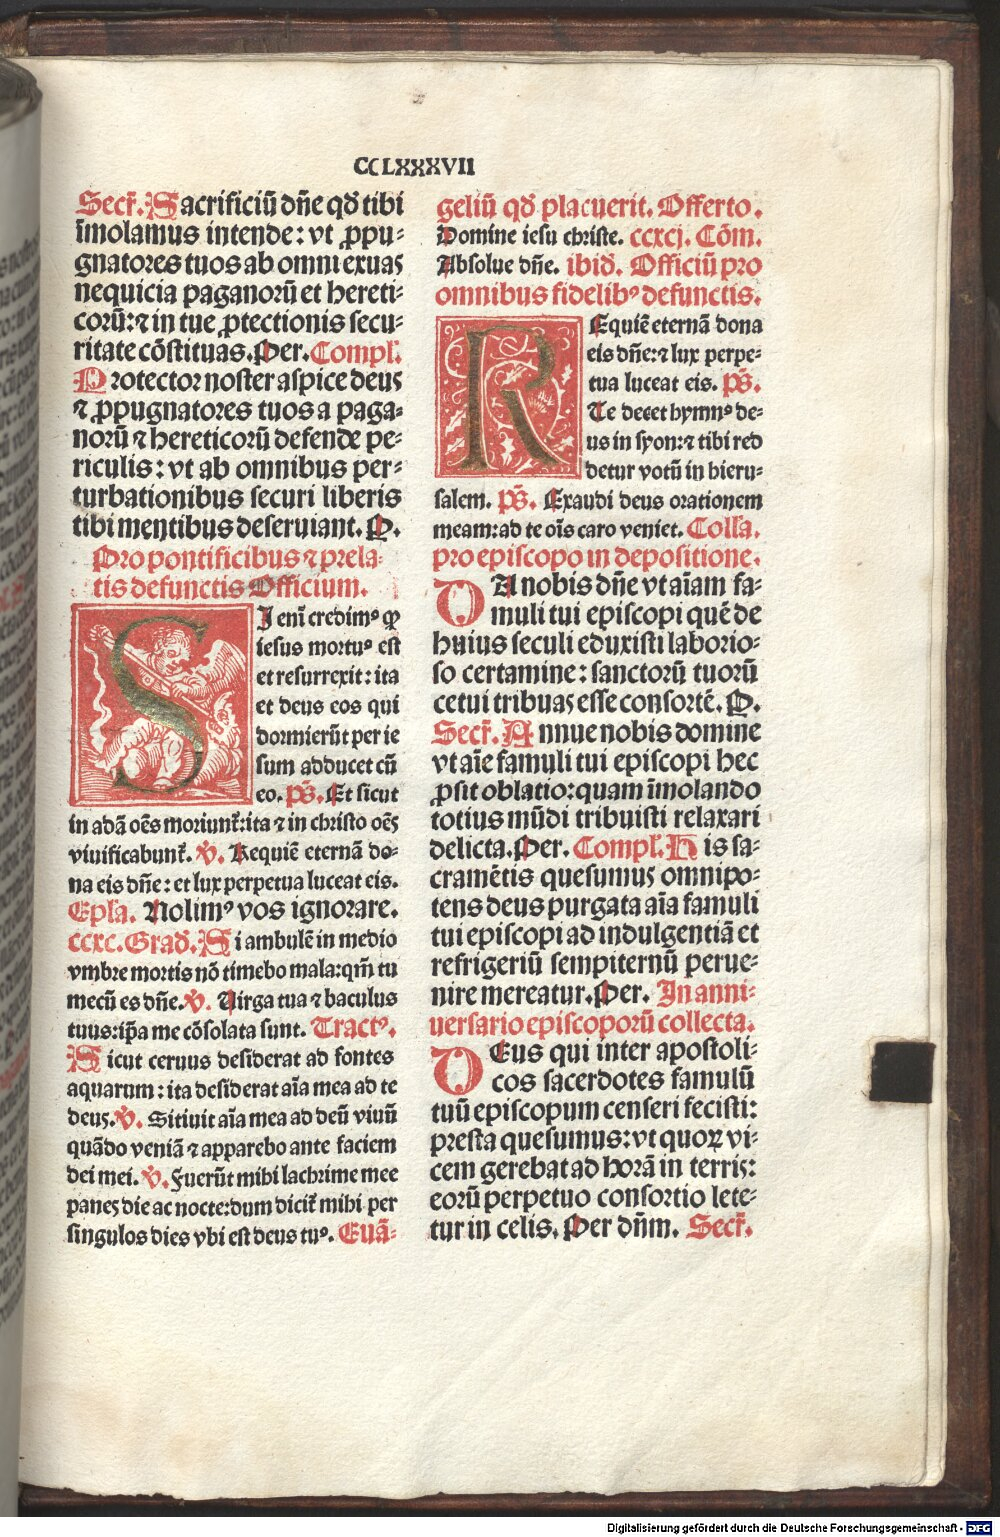 CCLXXXVII
Secr̃. Sacrificiũ dñe qď tibi
ĩmolamus intende: vt ꝓpu-
gnatores tuos ab omni exuas
nequicia paganorũ et hereti-
corũ: ⁊ in tue ꝓtectionis secu-
ritate cõstituas. Per. Compl̃.
Protector noster aspice deus
⁊ ꝓpugnatores tuos a paga-
norũ ⁊ hereticorũ defende pe-
riculis: vt ab omnibus per-
turbationibus securi liberis
tibi mentibus deseruiant. P.
Pro pontificibus ⁊ prela-
tis defunctis Officium.
SI enĩ credimꝰ ꝙ
iesus mortuꝰ est
et resurrexit: ita
et deus eos qui
dormierũt per ie
sum adducet cũ
eo. pš. Et sicut
in adã oẽs moriunt̃: ita ⁊ in christo oẽs
viuificabunt̃. ℣. Requiẽ eternã do-
na eis dñe: et lux perpetua luceat eis.
Epl̃a. Nolimꝰ vos ignorare.
ccxc. Grad̃. Si ambulẽ in medio
vmbre mortis nõ timebo mala: qm̃ tu
mecũ es dñe. ℣. Uirga tua ⁊ baculus
tuus: ip̃a me cõsolata sunt. Tractꝰ.
Sicut ceruus desiderat ad fontes
aquarum: ita desiderat aĩa mea ad te
deus. ℣. Sitiuit aĩa mea ad deũ viuũ
quãdo veniã ⁊ apparebo ante faciem
dei mei. ℣. Fuerũt mihi lachrime mee
panes die ac nocte: dum dicit̃ mihi per
singulos dies vbi est deus tuꝰ. Euã-
geliũ qď placuerit. Offerto.
Domine iesu christe. ccxcj. Cõm.
Absolue dñe. ibid̃. Officiũ pro
omnibus fidelibꝰ defunctis.
REquiẽ eternã dona
eis dñe: ⁊ lux perpe-
tua luceat eis. pš.
Te decet hymnꝰ de-
us in syon: ⁊ tibi red
detur votũ in hieru-
salem. pš. Exaudi deus orationem
meam: ad te oĩs caro veniet. Coll̃a.
pro episcopo in depositione.
DA nobis dñe vt aĩam fa-
muli tui episcopi quẽ de
huius seculi eduxisti laborio-
so certamine: sanctorũ tuorũ
cetui tribuas esse consortẽ. P.
Secr̃. Annue nobis domine
vt aĩe famuli tui episcopi hec
ꝓsit oblatio: quam ĩmolando
totius mũdi tribuisti relaxari
delicta. Per. Compl̃. His sa-
cramẽtis quesumus omnipo-
tens deus purgata aĩa famuli
tui episcopi ad indulgentiã et
refrigeriũ sempiternũ perue-
nire mereatur. Per. In anni-
uersario episcoporũ collecta.
DEus qui inter apostoli-
cos sacerdotes famulũ
tuũ episcopum censeri fecisti:
presta quesumus: vt quoꝝ vi-
cem gerebat ad horã in terris:
eorũ perpetuo consortio lete-
tur in celis. Per dñm. Secr̃.
Digitalisierung gefördert durch die Deutsche Forschungsgemeinschaft - DFG